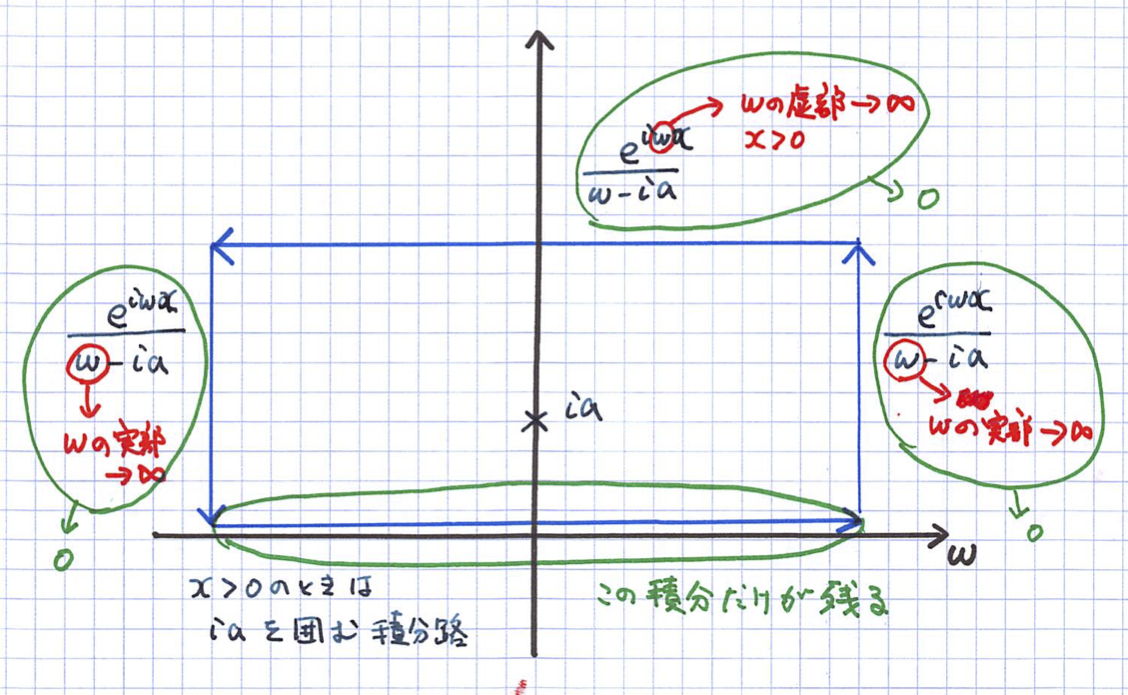 e^{iωx}
ω-ia
ωの虚部→∞
x>0
0
e^{iωx}
ω-ia
ωの実部
→∞
0
e^{iωx}
ω-ia
ωの実部→∞
0
ia
ω
x>0のときは
iaを囲む積分路
この積分だけが残る